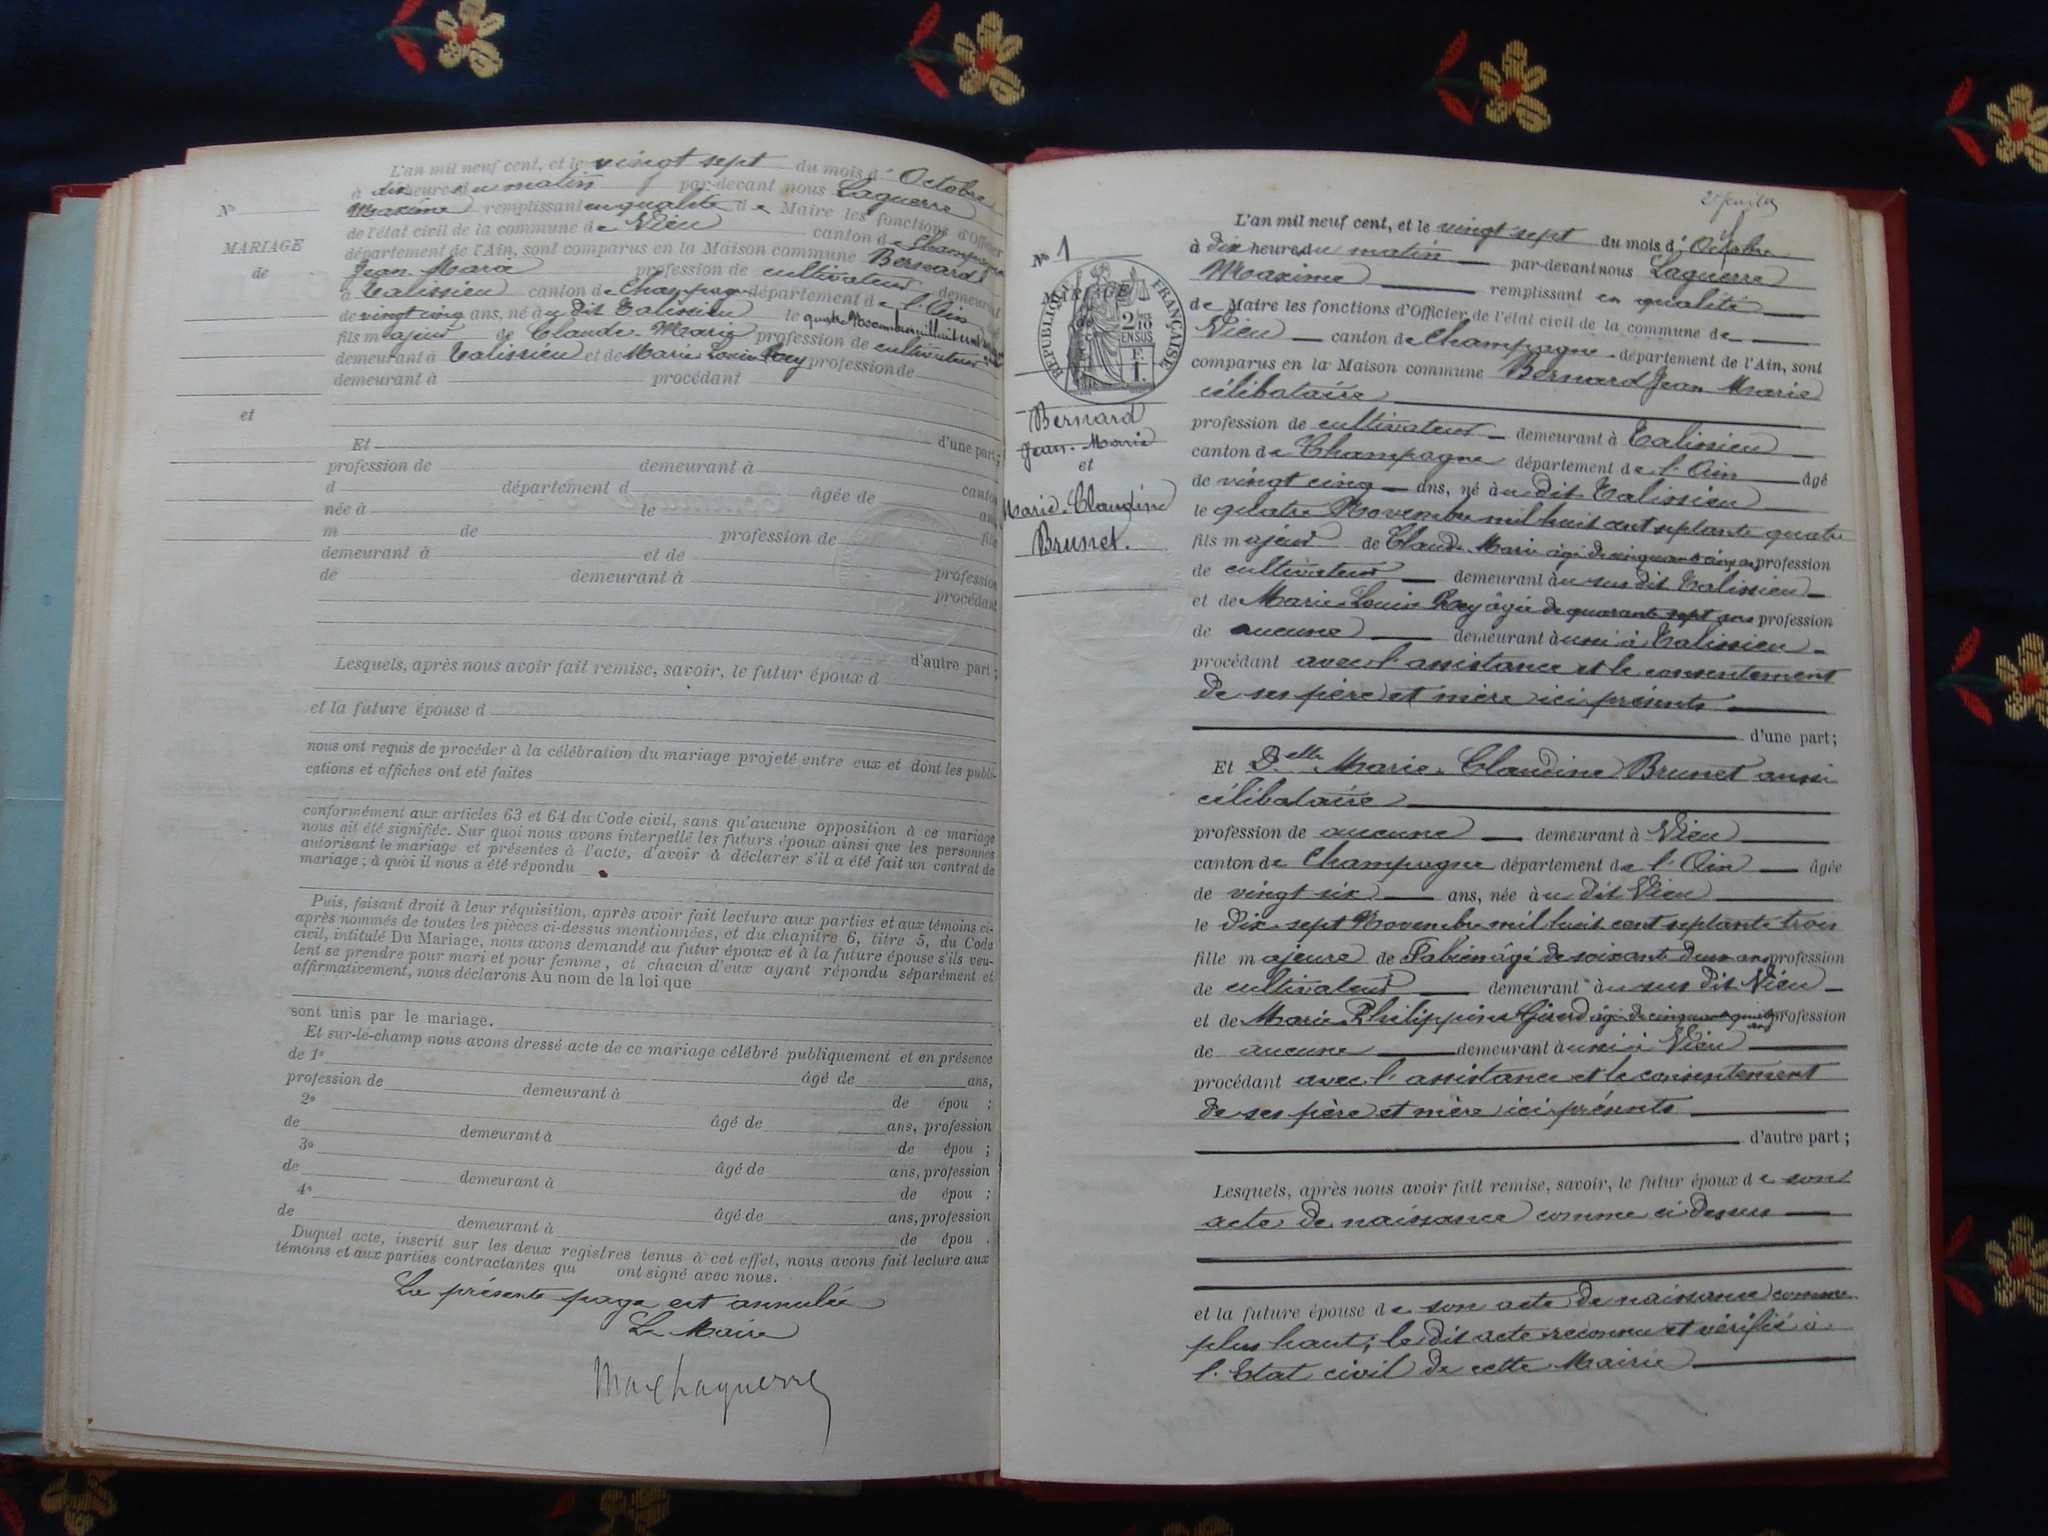 L'an mil neuf cent, et le vingt sept du mois d' Octobre
à dix heures du matin par-devant nous Laguerre
Maxime remplissant en qualité de Maire les fonctions d'Officier
de l'état civil de la commune de Vieu canton de Champagne
département de l'Ain, sont comparus en la Maison commune Bernard
Jean Marie profession de cultivateur demeurant
à Talissieu canton de Champagne département de l'Ain
de vingt cinq ans, né au dit Talissieu le quatre Novembre mil huit cent
fils majeur de Claude Marie profession de cultivateur
demeurant à Talissieu et de Marie Louise Rey profession de
demeurant à procédant
No
MARIAGE
de
et
Et d'une part;
profession de demeurant à canton
d département d âgée de ans
née à le fille
m de profession de
demeurant à et de profession
de demeurant à procédant
d'autre part;
Lesquels, après nous avoir fait remise, savoir, le futur époux d
et la future épouse d
nous ont requis de procéder à la célébration du mariage projeté entre eux et dont les publi-
cations et affiches ont été faites
conformément aux articles 63 et 64 du Code civil, sans qu'aucune opposition à ce mariage
nous ait été signifiée. Sur quoi nous avons interpellé les futurs époux ainsi que les personnes
autorisant le mariage et présentes à l'acte, d'avoir à déclarer s'il a été fait un contrat de
mariage; à quoi il nous a été répondu
Puis, faisant droit à leur réquisition, après avoir fait lecture aux parties et aux témoins ci-
après nommés de toutes les pièces ci-dessus mentionnées, et du chapitre 6, titre 5, du Code
civil, intitulé Du Mariage, nous avons demandé au futur époux et à la future épouse s'ils veu-
lent se prendre pour mari et pour femme, et chacun d'eux ayant répondu séparément et
affirmativement, nous déclarons Au nom de la loi que
sont unis par le mariage.
Et sur-le-champ nous avons dressé acte de ce mariage célébré publiquement et en présence
de 1º âgé de ans,
profession de demeurant à de épou ;
2º âgé de ans, profession
de demeurant à de épou ;
3º âgé de ans, profession
de demeurant à de épou ;
4º âgé de ans, profession
de demeurant à de épou .
Duquel acte, inscrit sur les deux registres tenus à cet effet, nous avons fait lecture aux
témoins et aux parties contractantes qui ont signé avec nous.
La présente page est annulée
Le Maire
Max Laguerre
2e feuillet
No 1
MARIAGE
RÉPUBLIQUE FRANÇAISE
2/10
EN SUS
Bernard
Jean-Marie
et
Marie-Claudine
Brunet.
L'an mil neuf cent, et le vingt sept du mois d' Octobre
à dix heures du matin par-devant nous Laguerre
Maxime remplissant en qualité
de Maire les fonctions d'Officier de l'état civil de la commune de
Vieu canton de Champagne département de l'Ain, sont
comparus en la Maison commune Bernard Jean Marie
célibataire
profession de cultivateur demeurant à Talissieu
canton de Champagne département de l'Ain âgé
de vingt cinq ans, né au dit Talissieu
le quatre Novembre mil huit cent septante quatre
fils majeur de Claude Marie âgé de cinquante ans profession
de cultivateur demeurant au sus dit Talissieu
et de Marie Louise Rey âgée de quarante sept ans profession
de aucune demeurant aussi à Talissieu
procédant avec l'assistance et le consentement
de ses père et mère ici présents
d'une part;
Et Delle Marie-Claudine Brunet aussi
célibataire
profession de aucune demeurant à Vieu
canton de Champagne département de l'Ain âgée
de vingt six ans, née au dit Vieu
le dix sept Novembre mil huit cent septante trois
fille majeure de Fabien âgé de soixante deux ans profession
de cultivateur demeurant au sus dit Vieu
et de Marie Philippine Girerd âgée de cinquante ans profession
de aucune demeurant aussi à Vieu
procédant avec l'assistance et le consentement
de ses père et mère ici présents
d'autre part;
Lesquels, après nous avoir fait remise, savoir, le futur époux de son
acte de naissance comme ci dessus
et la future épouse de son acte de naissance comme
plus haut; le dit acte reconnu et vérifié à
l'Etat civil de cette Mairie